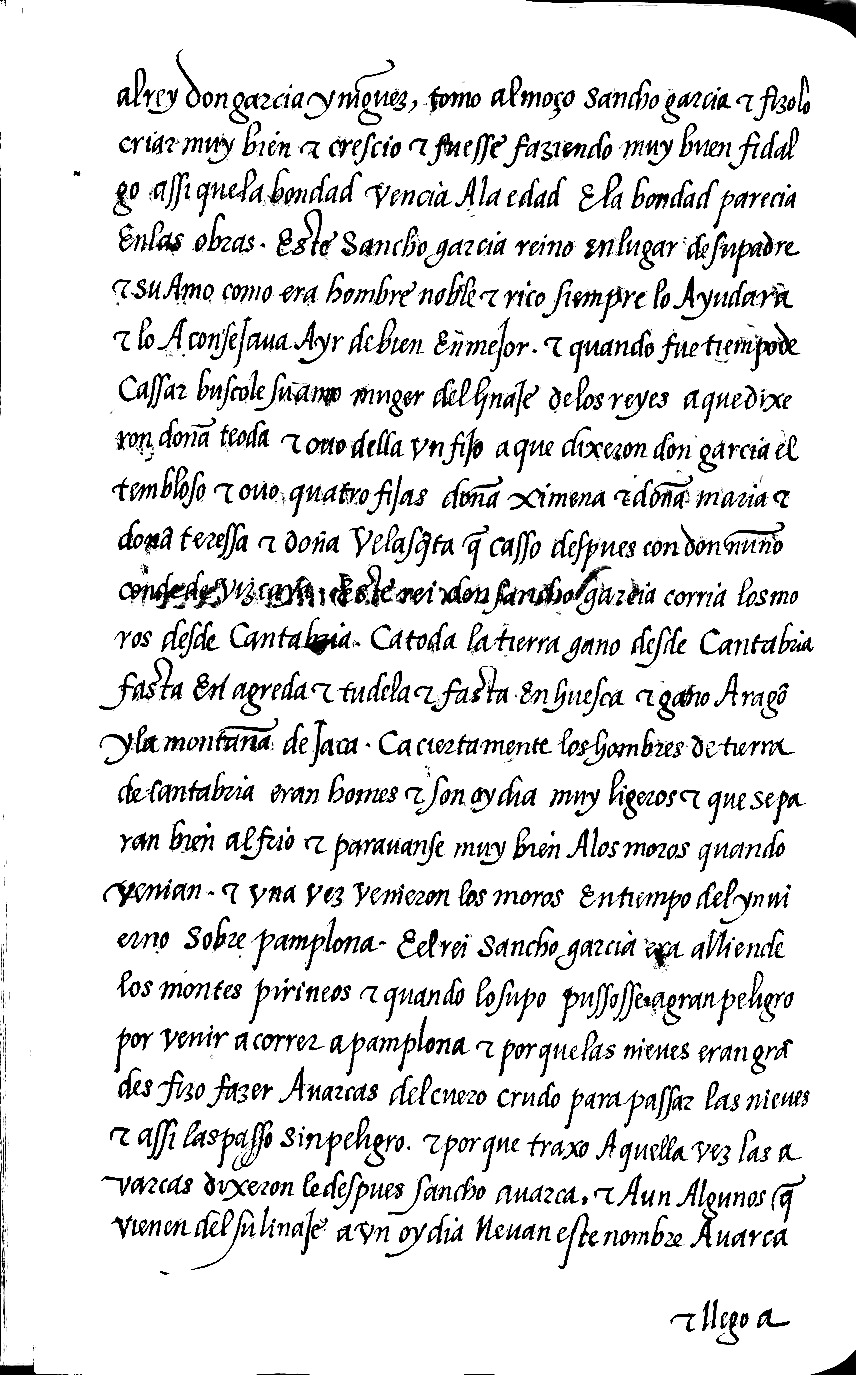 al rey don garcia ynig̃uez, tomo al moço Sancho garcia ⁊ fizolo
criar muy bien ⁊ crescio ⁊ fuesse faziendo muy buen fidal
go assi que la bondad vencia A la edad E la bondad parecia
En las obras. Este Sancho garcia reino en lugar de su padre
⁊ su Amo como era hombre noble ⁊ rico siempre lo Ayudara
⁊ lo Aconsejaua Ayr de bien En mejor. ⁊ quando fue tiempo de
Cassar buscole su amo muger del linaje de los reyes a que dixe
ron doña teoda ⁊ ouo della vn fijo a que dixeron don garcia el
tembloso ⁊ ouo quatro fijas doña Ximena ⁊ doña maria ⁊
doña teressa ⁊ doña Velasq̃ta q̃ casso despues con don nuño
conde de vizcaya. Este rei don sancho garcia corria los mo
ros desde Cantabria. Ca toda la tierra gano desde Cantabria
fasta En agreda ⁊ tudela ⁊ fasta En huesca ⁊ gano Aragõ
y la montaña de Jaca. Ca ciertamente los hombres de tierra
de Cantabria eran homes ⁊ son oy dia muy ligeros ⁊ que se pa
ran bien al frio ⁊ parauanse muy bien A los moros quando
venian. ⁊ vna vez venieron los moros En tiempo del ynui
erno Sobre pamplona. E el rei Sancho garcia era alliende
los montes pirineos ⁊ quando lo supo pussosse a gran peligro
por venir a correr a pamplona ⁊ porque las nieves eran grã
des fizo fazer Auarcas del cuero crudo para passar las nieues
⁊ assi las passo sin peligro. ⁊ porque traxo Aquella vez las a
varcas dixeron le despues sancho auarca. ⁊ Aun Algunos q̃
vienen del su linaje a vn oy dia lleuan este nombre Auarca
⁊ llego a